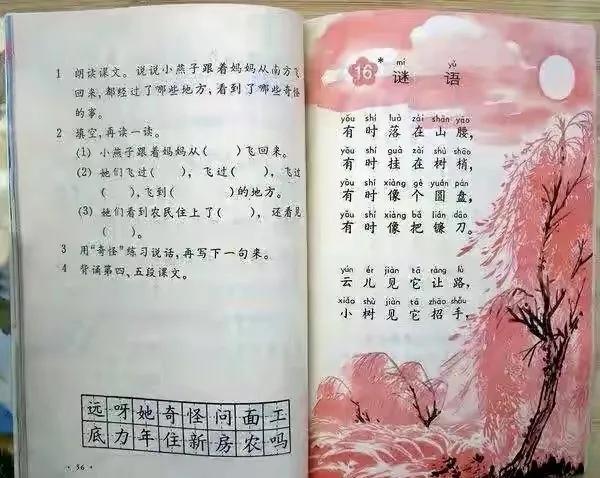 1 朗读课文。说说小燕子跟着妈妈从南方飞
回来,都经过了哪些地方,看到了哪些奇怪
的事。
2 填空,再读一读。
(1) 小燕子跟着妈妈从( )飞回来。
(2) 她们飞过( ),飞过( ),飞过
( ),飞到( )的地方。
(3) 她们看到农民住上了( ),还看见
( )。
3 用“奇怪”练习说话,再写下一句来。
4 背诵第四、五段课文。
远呀她奇怪问面工
底力年住新房农吗
· 56 ·
mí yǔ
16* 谜语
yǒu shí luò zài shān yāo
有时落在山腰,
yǒu shí guà zài shù shāo
有时挂在树梢,
yǒu shí xiàng gè yuán pán
有时像个圆盘,
yǒu shí xiàng bǎ lián dāo
有时像把镰刀。
yún ér jiàn tā ràng lù
云儿见它让路,
xiǎo shù jiàn tā zhāo shǒu
小树见它招手,